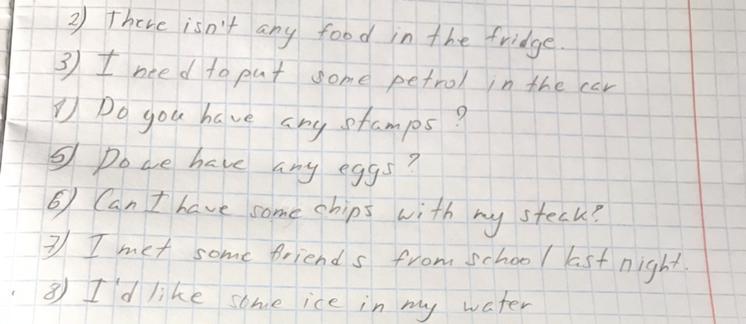 2) There isn't any food in the fridge.
3) I need to put some petrol in the car
4) Do you have any stamps?
5) Do we have any eggs?
6) Can I have some chips with my steak?
7) I met some friends from school last night.
8) I'd like some ice in my water